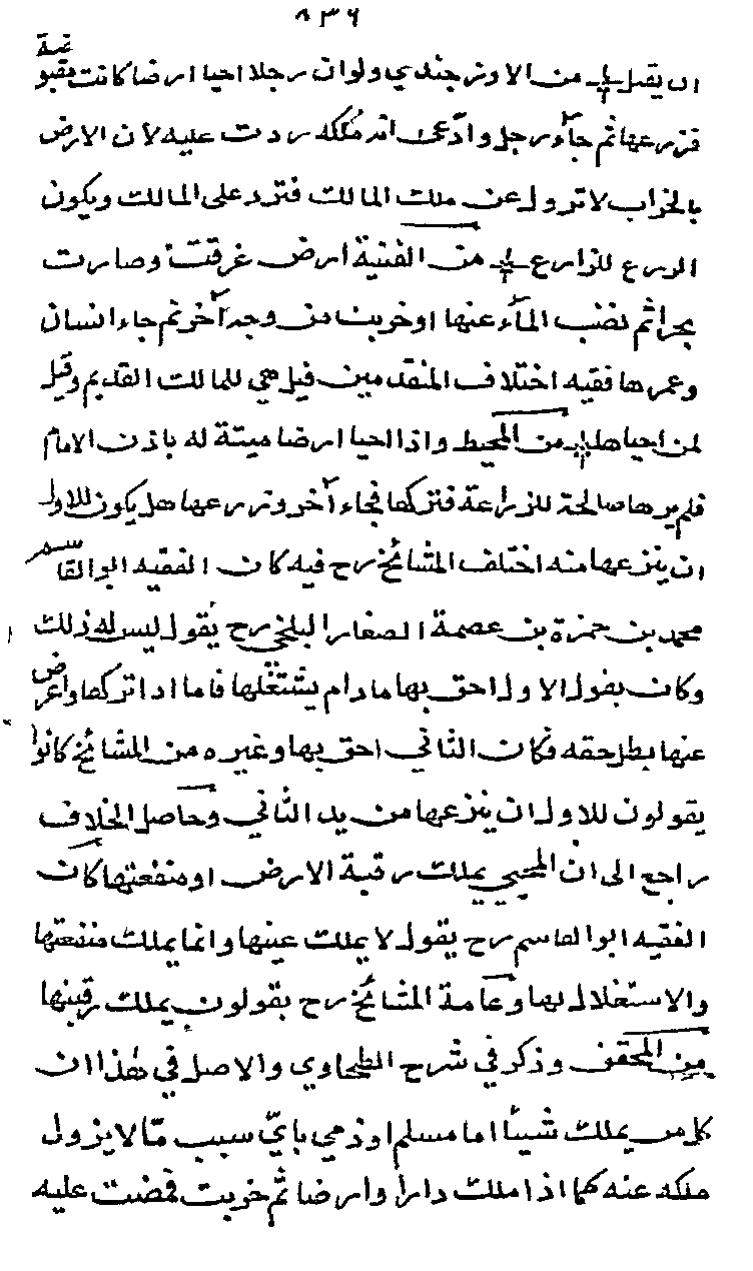 ٨٣٦
ان يقبل من الاوزجندي ولو ان رجلا احيا ارضا كانت بقبو
فزرعها ثم جاء رجل وادعى انه ملكه ردت عليه لان الارض
بالخراب لا تزول عن ملك المالك فترد على المالك ويكون
الزرع للزارع من القنية ارض غرقت وصارت
بحرا ثم نضب الماء عنها او خربت من وجه آخر ثم جاء انسان
وعمرها ففيه اختلاف المتقدمين قيل هي للمالك القديم وقيل
لمن احياها من المحيط واذا احيا ارضا ميتة له باذن الامام
فلم يرها صالحة للزراعة فتركها فجاء آخر وزرعها هل يكون للاول
ان ينزعها منه اختلف المشائخ رح فيه كان الفقيه ابو القاسم
محمد بن حمزة بن عصمة الصفار البلخي رح يقول ليس له ذلك
وكان يقول الاول احق بها مادام يشتغلها فاما اذا تركها واعرض
عنها بطل حقه فكان الثاني احق بها وغيره من المشائخ كانوا
يقولون للاول ان ينزعها من يد الثاني وحاصل الخلاف
راجع الى ان المحيي يملك رقبة الارض او منفعتها كان
الفقيه ابو القاسم رح يقول لا يملك عينها وانما يملك منفعتها
والاستغلال بها وعامة المشائخ رح يقولون يملك رقبتها
من المحقق وذكر في شرح الطحاوي والاصل في هذا ان
كل من يملك شيئا اما مسلم او ذمي باي سبب ما لا يزول
ملكه عنه كما اذا ملك دارا وارضا ثم خربت فمضت عليه